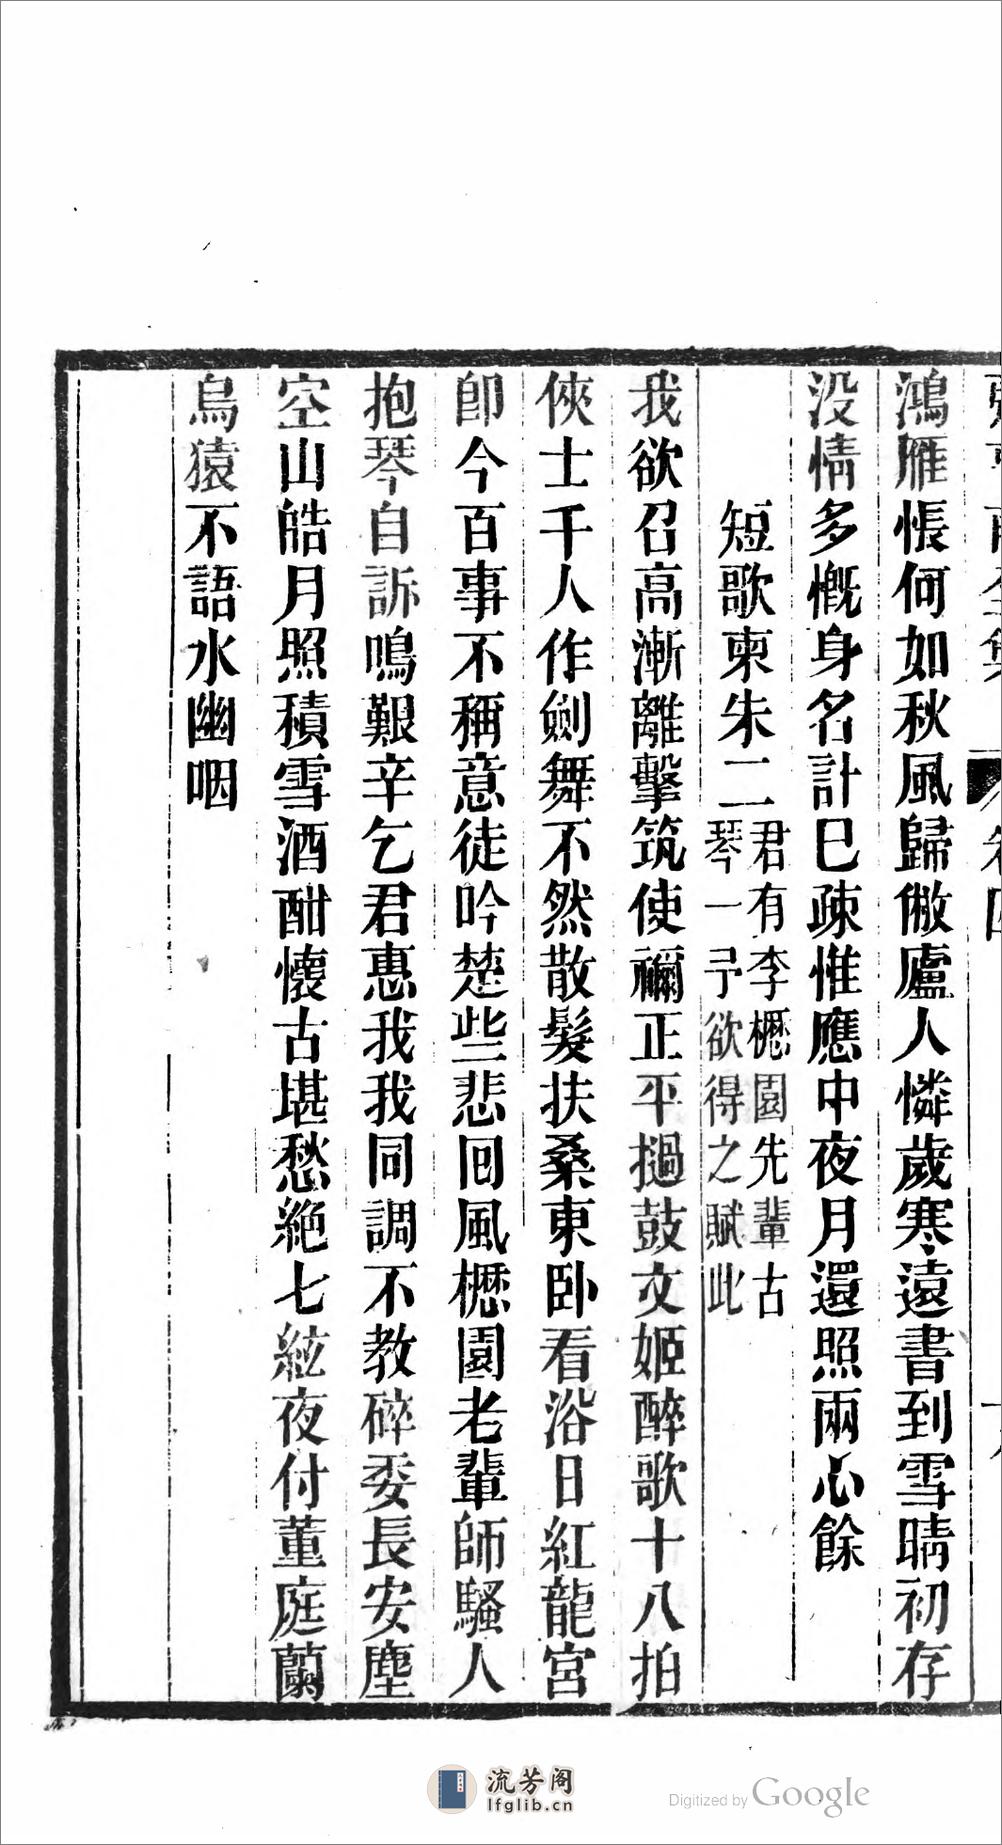 鴻雁悵何如秋風歸儌廬人憐歲寒遠書到雪晴初存
没情多慨身名計巳疎惟應中夜月還照兩心餘
短歌柬朱二君有李櫪園先輩古
琴一予欲得之賦此
我欲召高漸離擊筑使禰正平撾鼓文姬醉歌十八拍
俠士千人作劍舞不然散髮扶桑東卧看浴日紅龍宮
即今百事不稱意徒吟楚些悲回風櫪園老輩師騷人
抱琴自訴鳴艱辛乞君惠我我同調不教碎委長安塵
空山皓月照積雪酒酣懷古堪愁絶七絃夜付董庭蘭
烏猿不語水幽咽
流芳阁
lfglib.cn
Digitized by Google